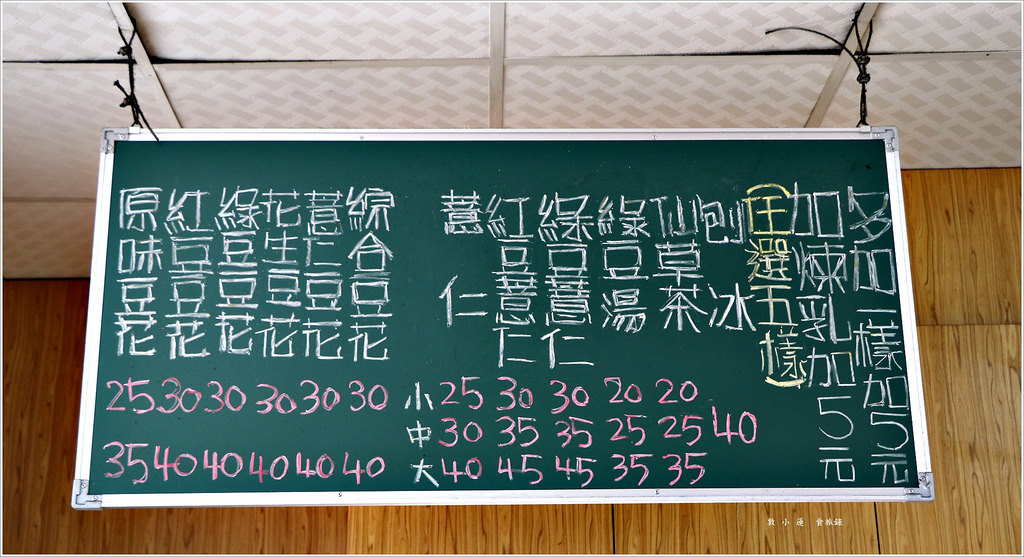 多加一樣加5元
加煉乳加5元
(任選五樣)
刨冰
仙草茶
綠豆湯
綠豆薏仁
紅豆薏仁
薏仁
綜合豆花
薏仁豆花
花生豆花
綠豆豆花
紅豆豆花
原味豆花
25 30 30 30 30 30
35 40 40 40 40 40
小 25 30 30 20 20
中 30 35 35 25 25 40
大 40 45 45 35 35
敦小蓮 食旅錄